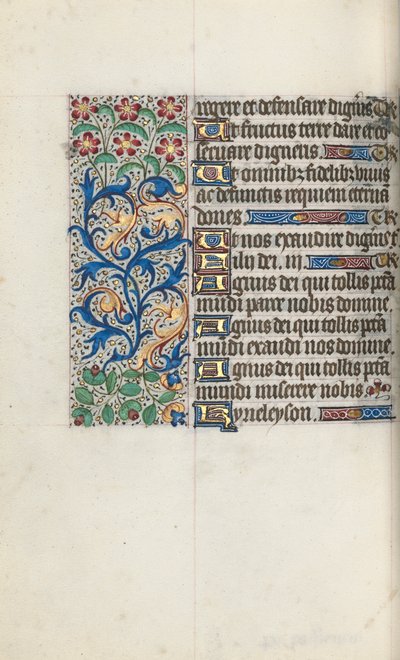 uvere et defensare digneris Te R
Ut fructus terre dare et co
servare digneris. Te R
Ut omnibz fidelibz vivis
ac defunctis requiem eterna
dones. Te R
Ut nos exaudire digne t
Fili dei. iii
Agnus dei qui tollis pcta
mundi parce nobis domine.
Agnus dei qui tollis pcta
mundi exaudi nos domine.
Agnus dei qui tollis pcta
mundi miserere nobis
Kyrieleyson.